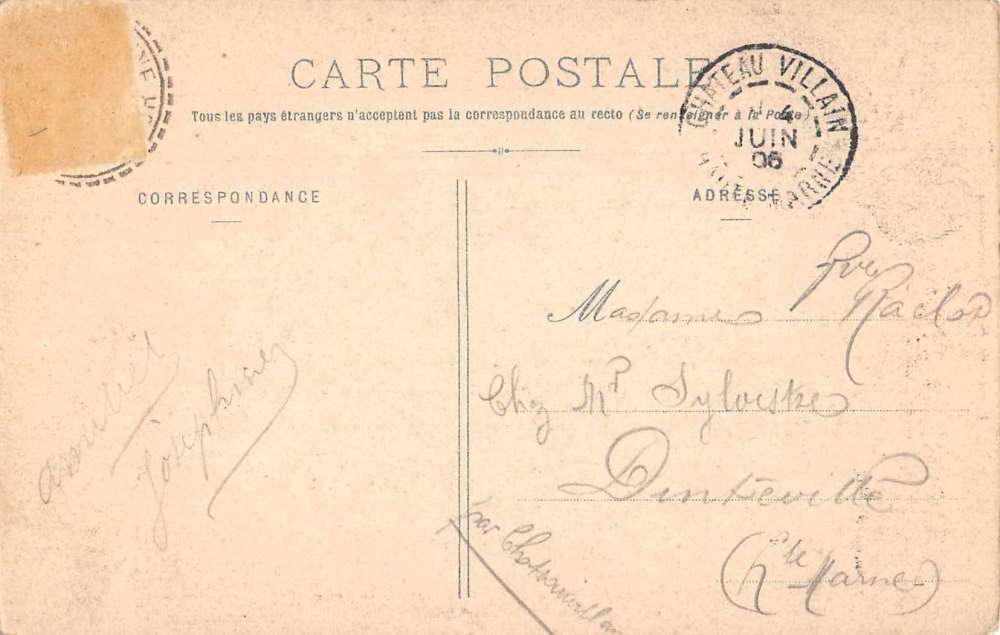 CARTE POSTALE
Tous les pays étrangers n'acceptent pas la correspondance au recto (Se renseigner à la Poste)
CHATEAU VILLAIN
4
JUIN
06
HAUTE MARNE
CORRESPONDANCE
ADRESSE
Joséphine
Madame Vve Raclot
Chez Mr Sylvestre
Dinteville
(Hte Marne)
par Chateauvillain